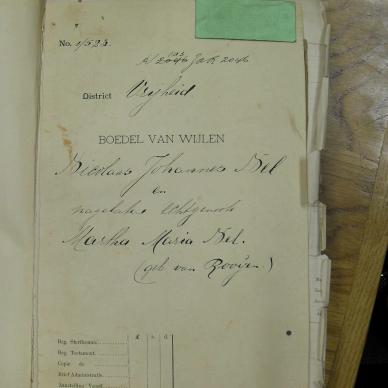 No. 1/524.
2046 Jak 2046
District Vryheid
BOEDEL VAN WIJLEN
Nicolaas Johannes Nel
en
nagelaten echtgenoote
Martha Maria Nel.
(geb van Rooijen)
£ s. d.
Reg. Sterfkennis.
Reg. Testament.
Copie do
Brief Administratie.
Aanstelling Voogd